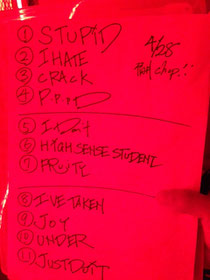 ① STUPID
② I HATE
③ CRACK
④ P.P.O.D
⑤ I Don't
⑥ HIGH SENSE STUDENT
⑦ FRUITY
⑧ I'VE TAKEN
⑨ JOY
⑩ UNDER
⑪ JUST DO IT
4/28